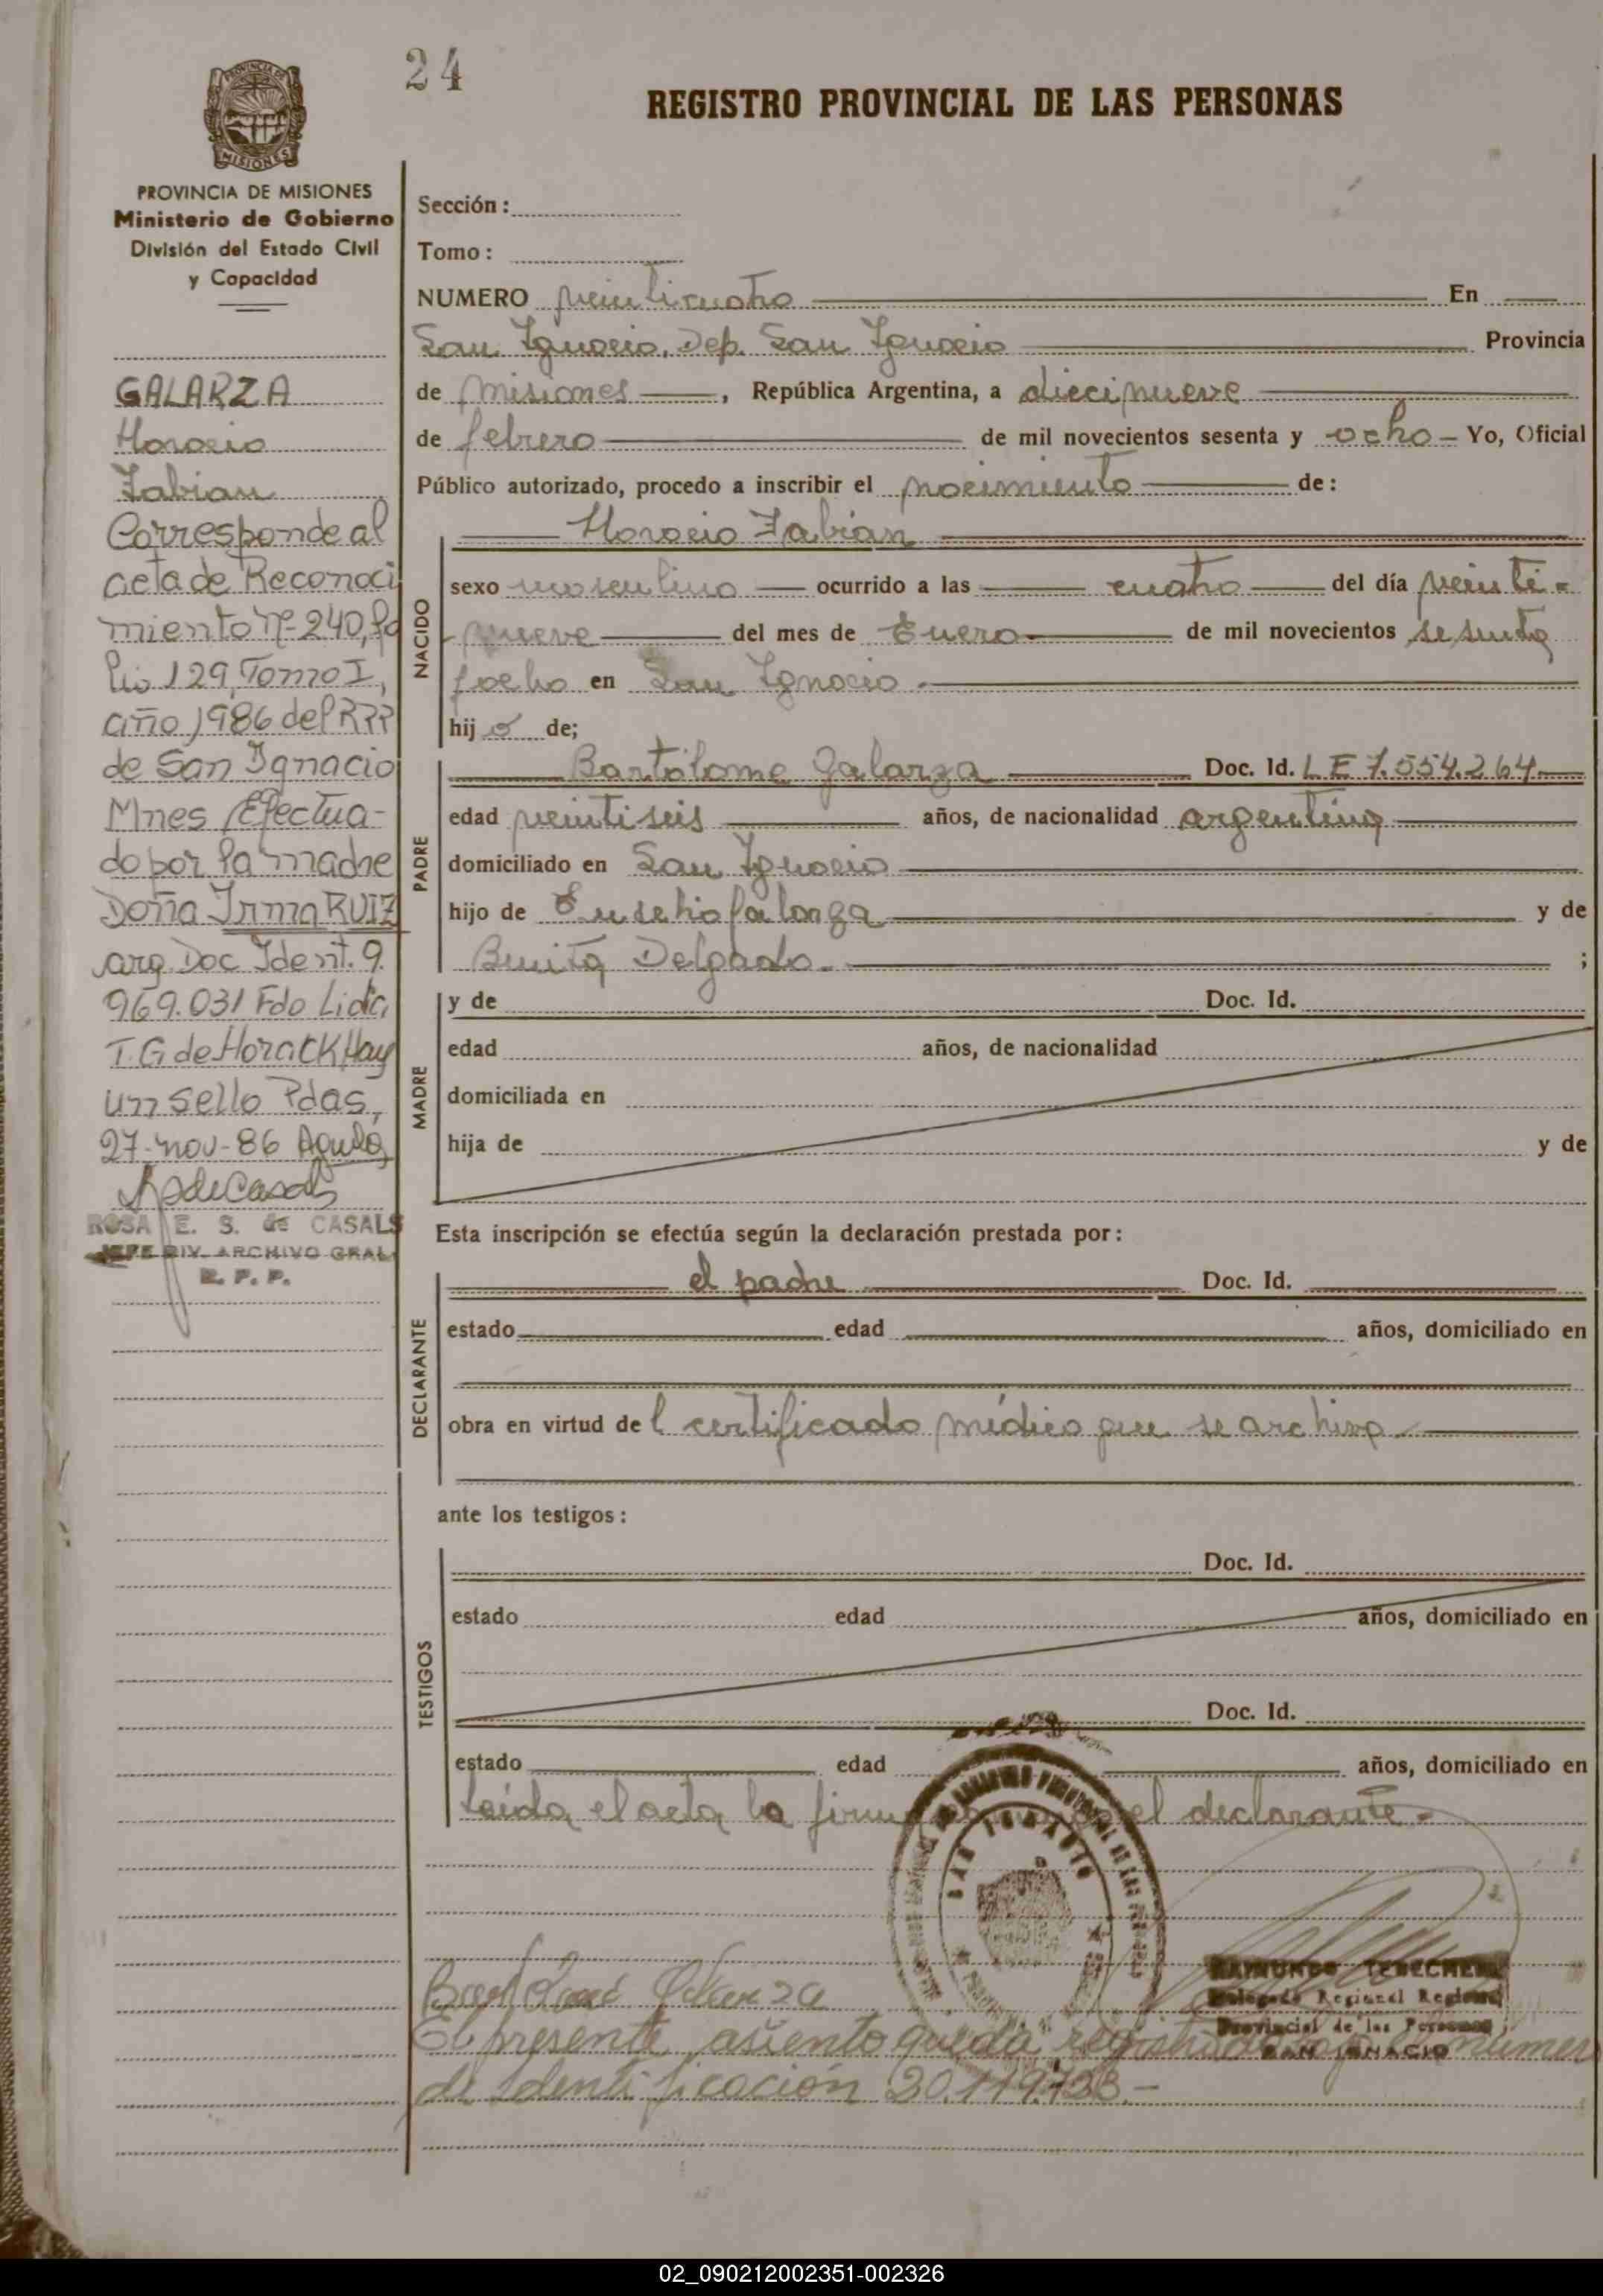 24
REGISTRO PROVINCIAL DE LAS PERSONAS
PROVINCIA DE MISIONES
Ministerio de Gobierno
División del Estado Civil
y Capacidad
GALARZA
Horacio
Fabian
Corresponde al
acta de Reconoci
miento nº 240, fo
lio 129, Tomo I,
año 1986 del RPP
de San Ignacio
Mnes Efectua-
do por la madre
Doña Irma RUIZ
arg Doc Ident. 9.
969.031 Fdo Lidia
T. G de Horack Hay
un sello Pdas,
27-nov-86
ROSA E. S. de CASALS
JEFE DIV. ARCHIVO GRAL
R. P. P.
Sección :
Tomo :
NUMERO veinticuatro En
San Ignacio, Dep. San Ignacio Provincia
de Misiones, República Argentina, a diecinueve
de febrero de mil novecientos sesenta y ocho Yo, Oficial
Público autorizado, procedo a inscribir el nacimiento de :
Horacio Fabian
NACIDO
sexo masculino ocurrido a las cuatro del día veinti-
nueve del mes de Enero de mil novecientos sesenta
y ocho en San Ignacio.
hijo de;
PADRE
Bartolome Galarza Doc. Id. L E 7.554.264
edad veintiseis años, de nacionalidad argentina
domiciliado en San Ignacio
hijo de Eusebio Galarza y de
Benita Delgado. ;
MADRE
y de Doc. Id.
edad años, de nacionalidad
domiciliada en
hija de y de
Esta inscripción se efectúa según la declaración prestada por :
DECLARANTE
el padre Doc. Id.
estado edad años, domiciliado en
obra en virtud del certificado médico que se archiva
ante los testigos :
TESTIGOS
Doc. Id.
estado edad años, domiciliado en
Doc. Id.
estado edad años, domiciliado en
Leida el acta la firma el declarante.
SAN IGNACIO
Bartolomé Galarza
RAIMUNDO
Delegado Regional Registro
Provincial de las Personas
SAN IGNACIO
El presente asiento queda numero
de Identificación
02_090212002351-002326